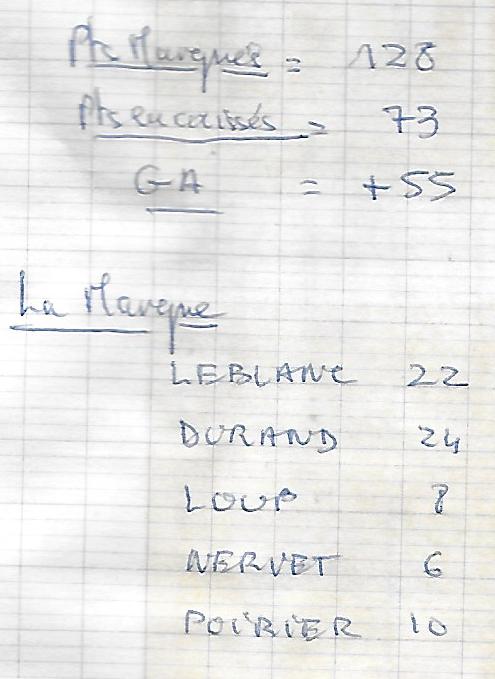 Pts Marqués = 128
Pts encaissés = 73
G-A = +55
La Marque
LEBLANC 22
DURAND 24
LOUP 8
NERVET 6
POIRIER 10